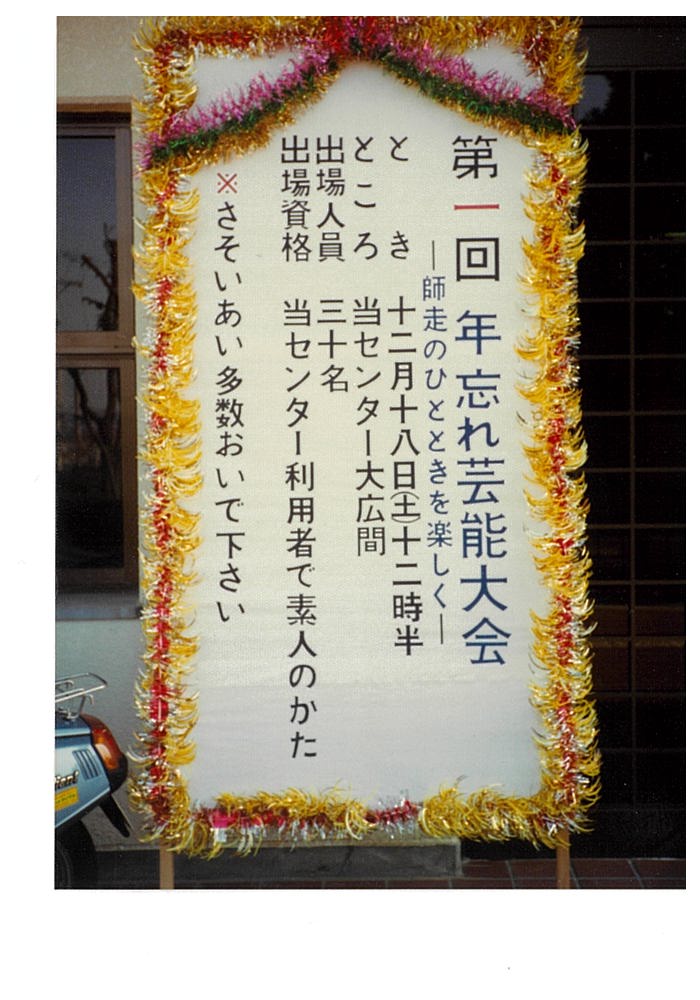 第一回 年忘れ芸能大会
―師走のひとときを楽しく―
とき 十二月十八日(土)十二時半
ところ 当センター大広間
出場人員 三十名
出場資格 当センター利用者で素人のかた
※さそいあい多数おいで下さい